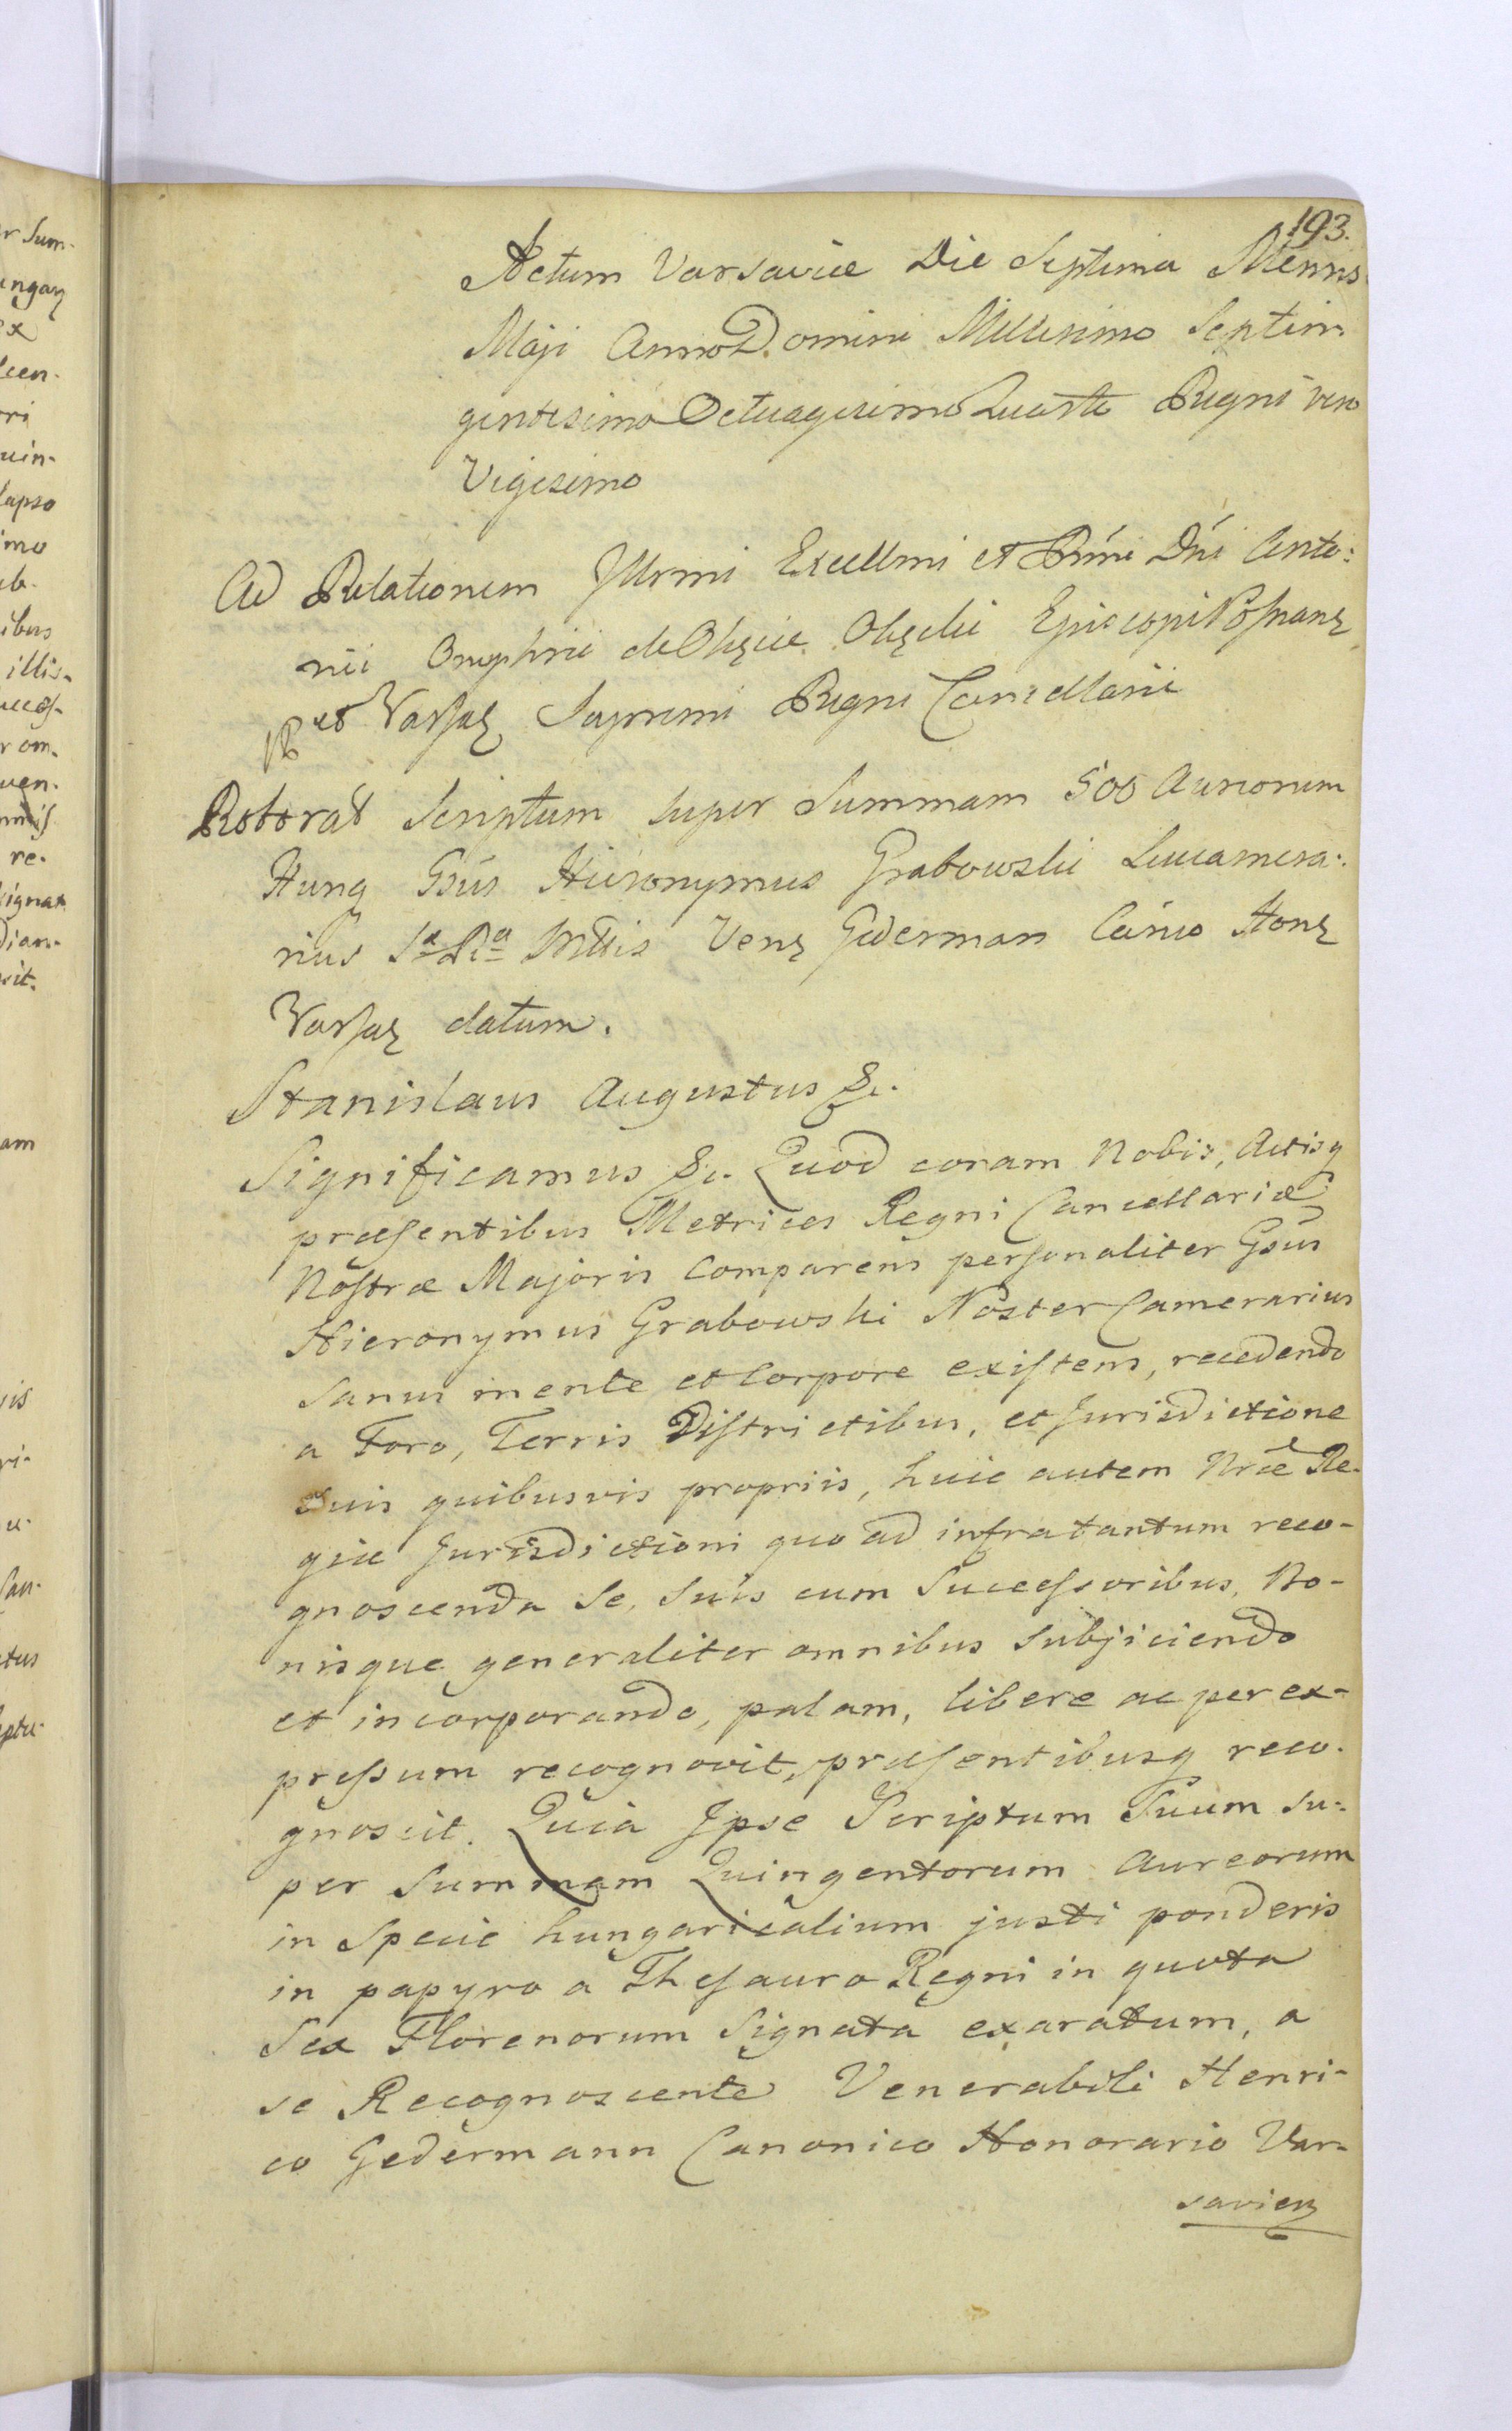 193.
Actum Varsaviæ Die Septima Mensis
Maji Anno Domini Millesimo Septin
gentesimo Octuagesimo Quarto Regni vero
Vigesimo
Ad Relationem Illrmi Excellmi et Rmi Dni Anto:
nii Onuphrii de Okęcie Okęcki Episcopi Posnanz
et Varsaz Supremi Regni Cancellarii
Roborat Scriptum super Summam 500 Aureorum
Hung Gsus Hieronymus Grabowski Camera:
rius Sæ Ræ Mttis Venz Gederman Canco Honz
Varsaz datum.
Stanislaus Augustus &c.
Significamus &c. Quod coram Nobis, Actisq
præsentibus Metrices Regni Cancellariæ
Nostræ Majoris Comparens personaliter Gsus
Hieronymus Grabowski Noster Camerarius
Sanus mente et Corpore existens, recedendo
a Foro, Terris Districtibus, et Jurisdictione
Suis quibusvis propriis, huic autem Nræ Re-
giæ Jurisdictioni quo ad infra tantum reco-
gnoscenda Se, Suis cum Successoribus, Bo-
nisque generaliter omnibus Subjiciendo
et incorporando, palam, libere ac per ex-
pressum recognovit, præsentibusq reco-
gnoscit. Quia Ipse Scriptum Suum Su-
per Summam Quingentorum Aureorum
in Specie hungaricalium justi ponderis
in papyro a Thesauro Regni in quota
Sex Florenorum Signata exaratum, a
se Recognoscente Venerabili Henri-
co Gedermann Canonico Honorario Var-
savienz